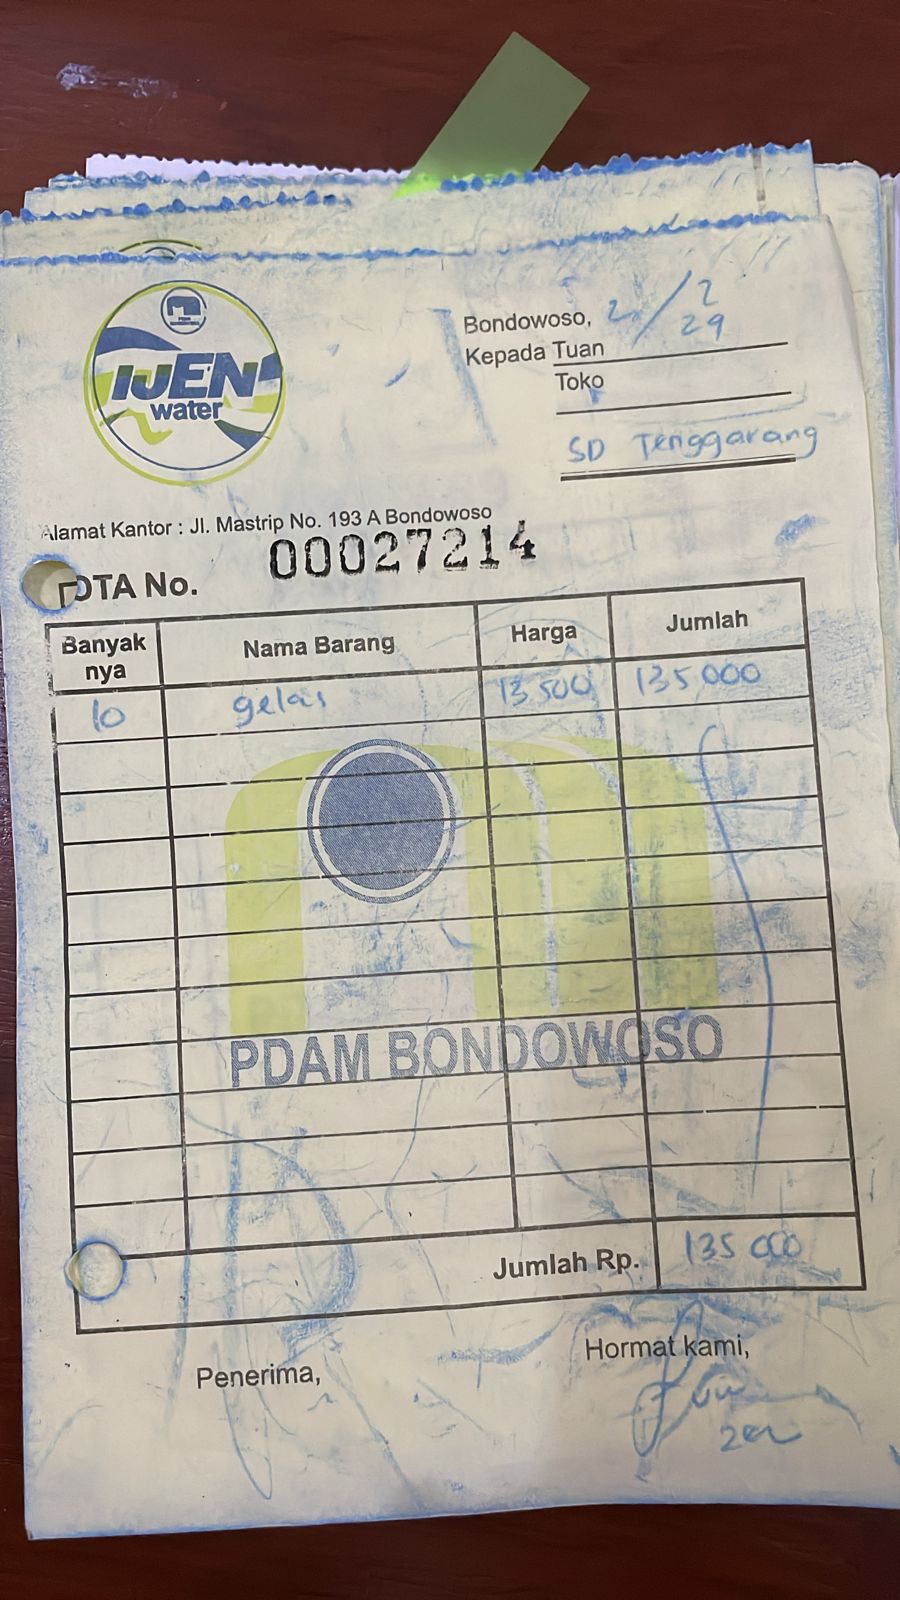 IJEN
water
Bondowoso, 2/2
29
Kepada Tuan
Toko
SD Tenggarang
Alamat Kantor : Jl. Mastrip No. 193 A Bondowoso
OTA No. 00027214
Banyak nya Nama Barang Harga Jumlah
10 gelas 13 500 135 000
PDAM BONDOWOSO
Jumlah Rp. 135 000
Penerima, Hormat kami,